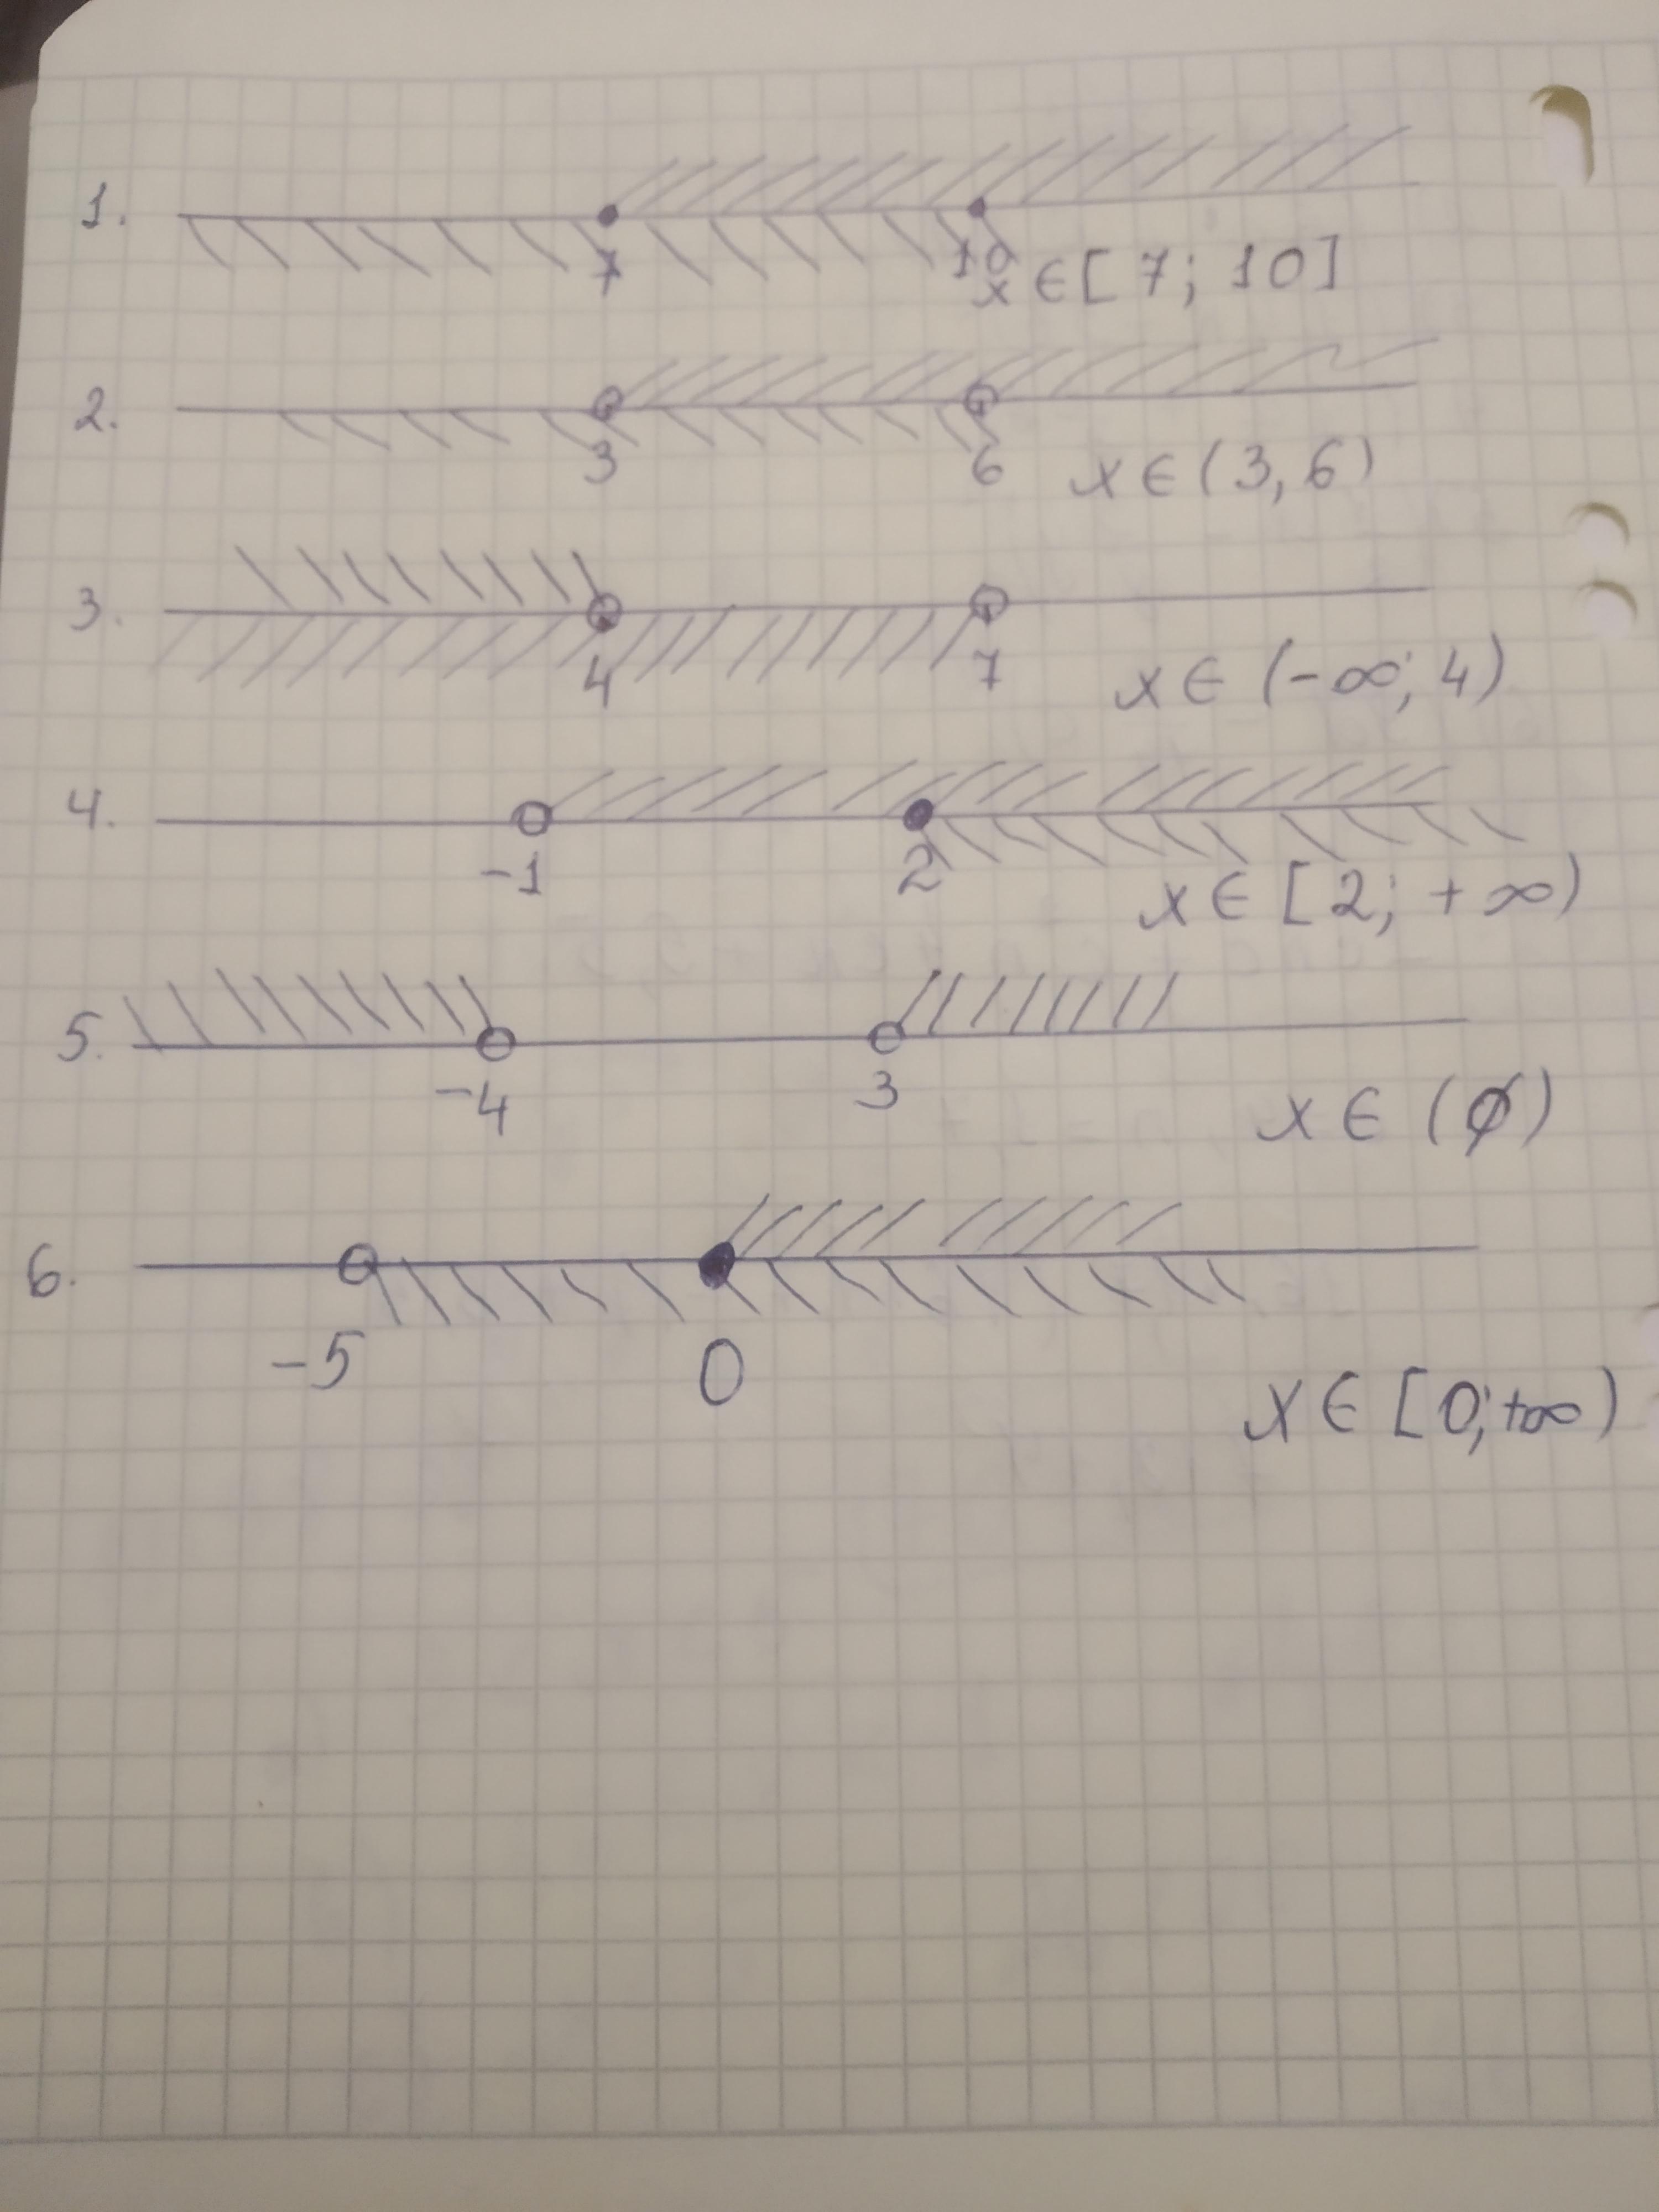 1.
7 10
x ∈ [7; 10]
2.
3 6 x ∈ (3, 6)
3.
4 7 x ∈ (-∞; 4)
4.
-1 2 x ∈ [2; +∞)
5.
-4 3 x ∈ (∅)
6.
-5 0 x ∈ [0; +∞)